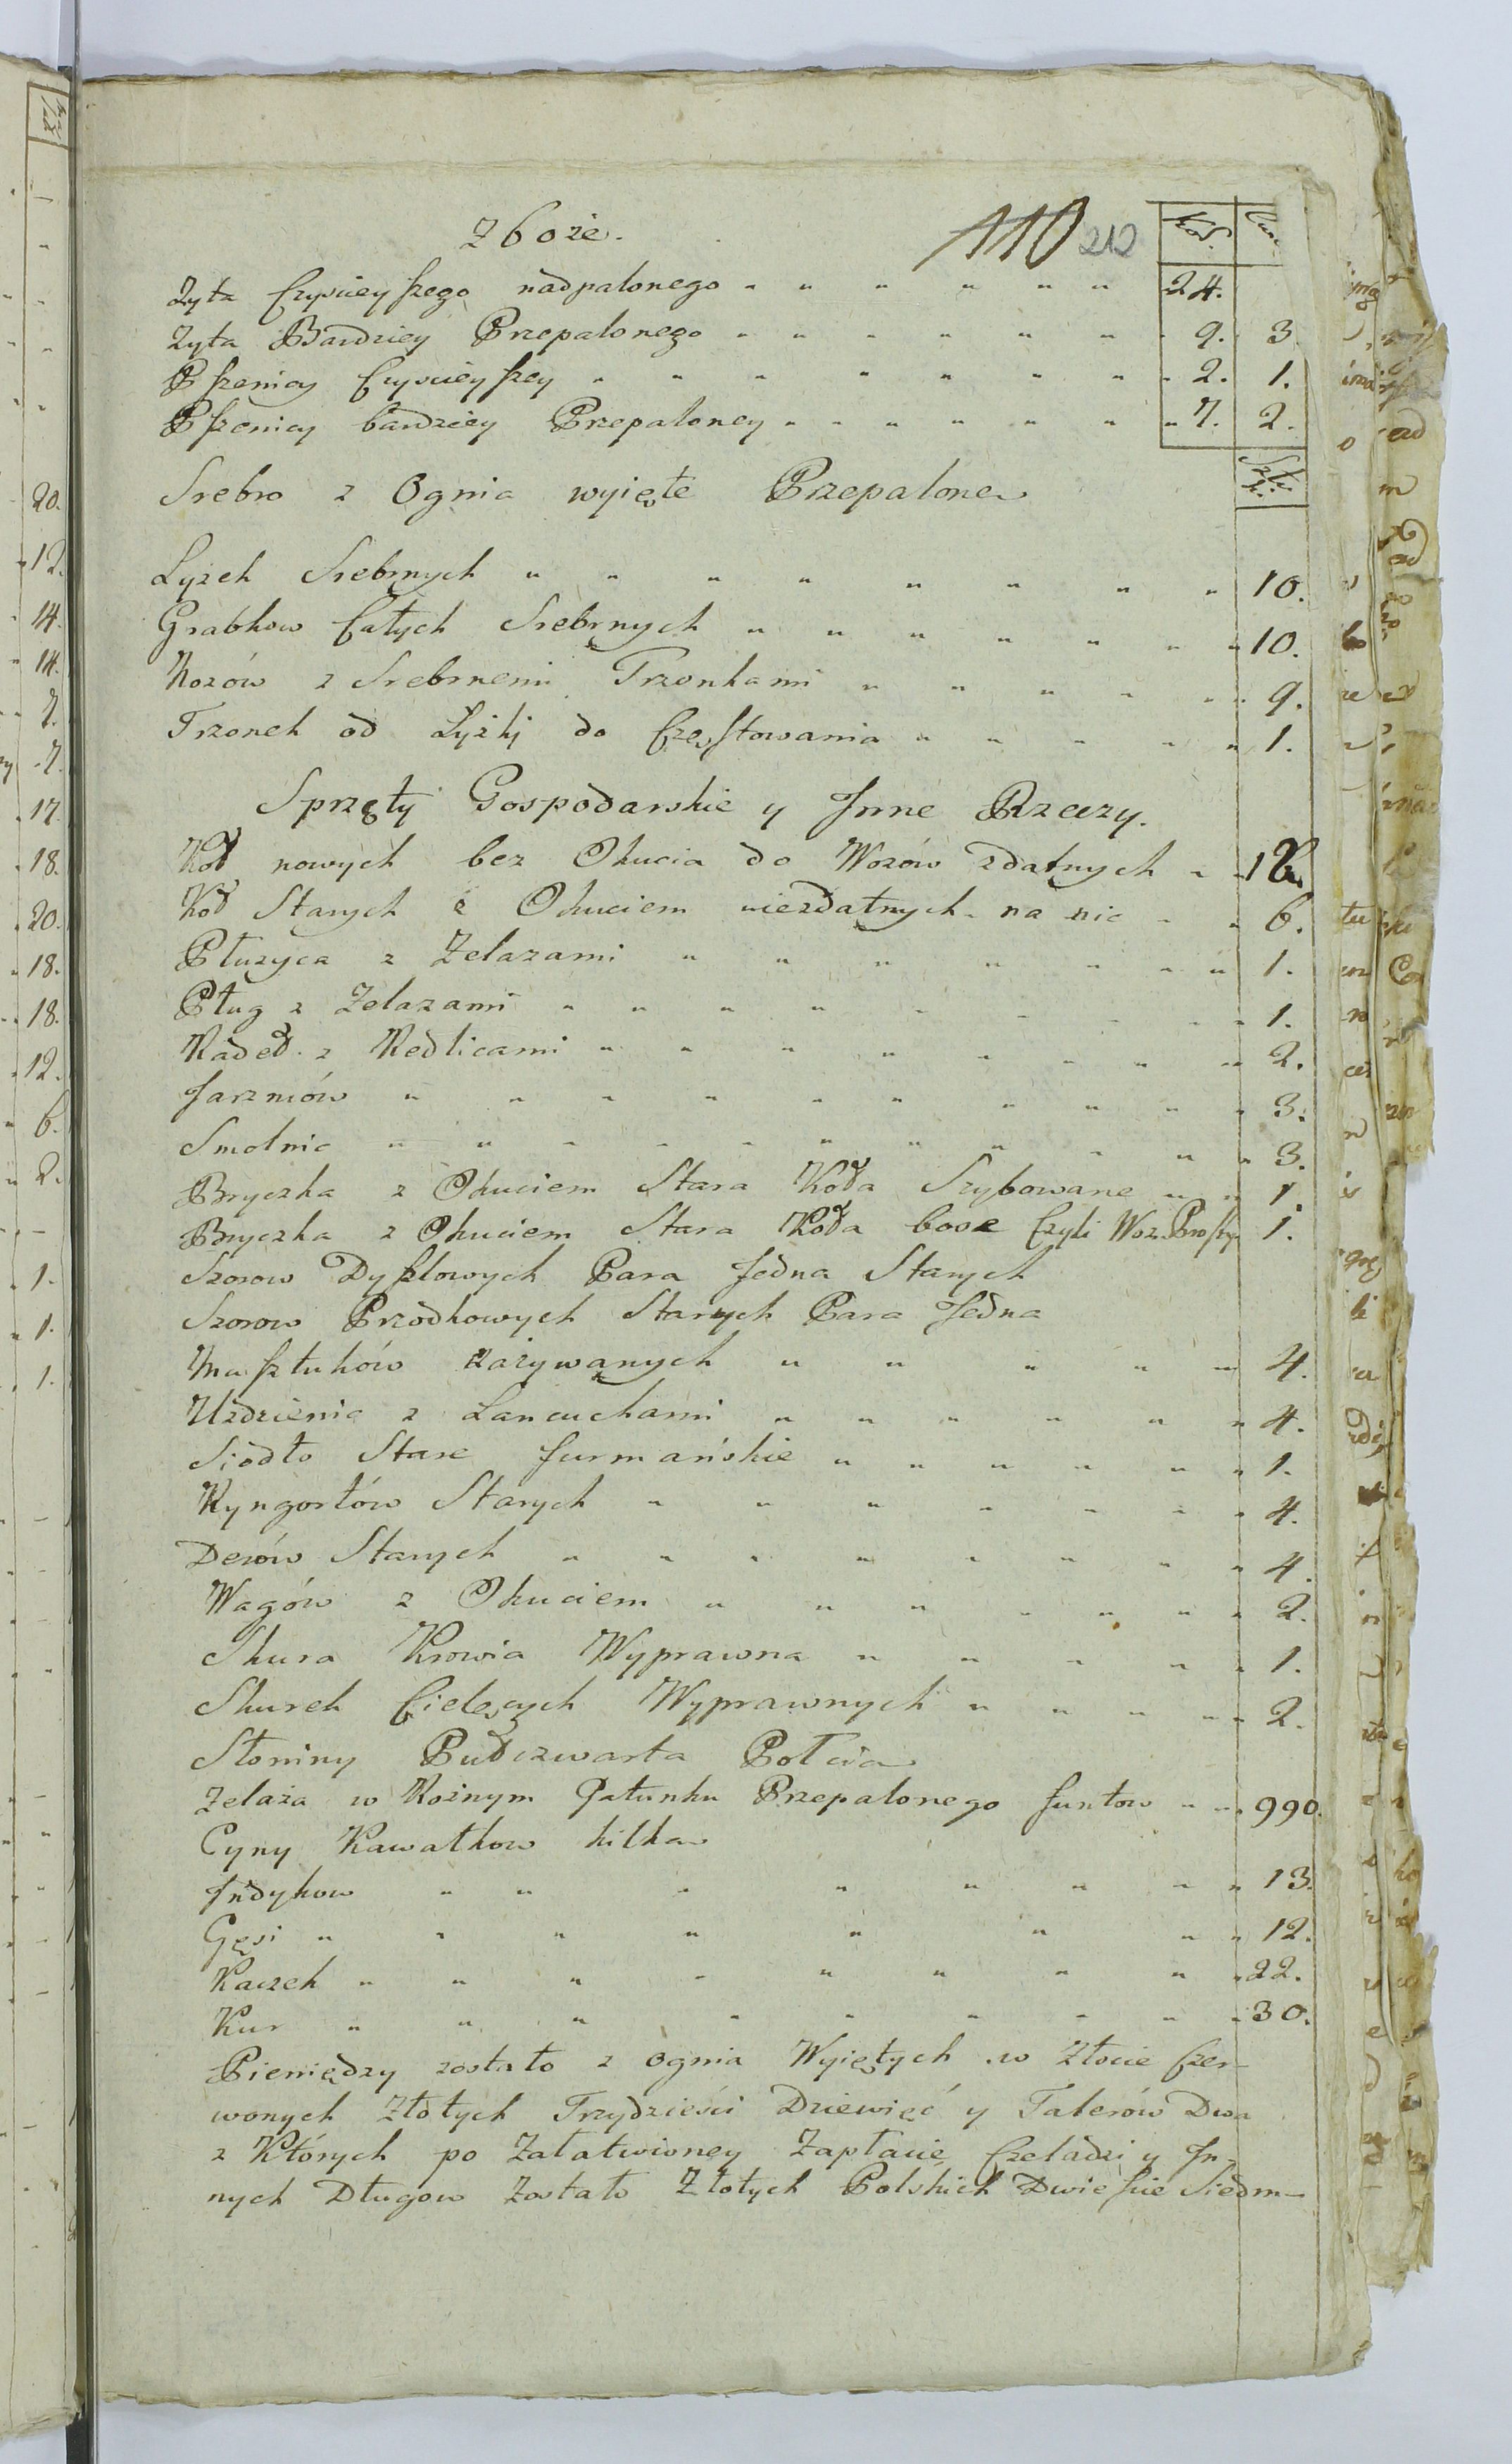 Zboże.
110 212
Kor. Gar.
Zyta Czyscieyszego nadpalonego 24.
Zyta Bardziey Przepalonego 9. 3.
Pszenicy Czyscieyszey 2. 1.
Pszenicy bardziey Przepaloney 7. 2.
Srebro z Ognia wyięte Przepalone
Sztuki
Łyżek Srebrnych 10.
Grabkow Całych Srebrnych 10.
Nozów z Srebrnemi Trzonkami 9.
Trzonek od Łyżki do Częstowania 1.
Sprzęty Gospodarskie y Inne Rzeczy.
Koł nowych bez Okucia do Wozów zdatnych
Koł Starych z Okuciem niezdatnych na nic 6.
Płużyca z Zelazami 1.
Pług z Zelazami 1.
Radeł z Redlicami 2.
Jarzmów 3.
Smolnic 3.
Bryczka z Okuciem Stara Koła Szybowane 1.
Bryczka z Okuciem Stara Koła bose Czyli Woz Prosty 1.
Szorow Dyszlowych Para Jedna Starych
Szorow Przodkowych Starych Para Jedna
Musztuków zażywanych 4.
Uzdzienic z Lancuchami 4.
Siodło Stare furmańskie 1.
Kyngortów Starych 4.
Derów Starych 4.
Wagów z Okuciem 2.
Skura Krowia Wyprawna 1.
Skurek Cielęcych Wyprawnych 2.
Słoniny Pułczwarta Połcia
Zelaza w Rożnym Gatunku Przepalonego funtow 990.
Cyny Kawałkow kilka
Jndykow 13.
Gęsi 12.
Kaczek 22.
Kur 30.
Pieniędzy zostało z ognia Wyiętych w Złocie Czer-
wonych Złotych Trzydzieści Dziewięć y Talerów Dwa
z Których po Załatwioney Zapłacie Czeladzi y In-
nych Długow Zostało Złotych Polskich Dwieście Siedm-
20.
12.
14.
14.
7.
7.
17.
18.
20.
18.
18.
12.
6.
2.
1.
1.
1.